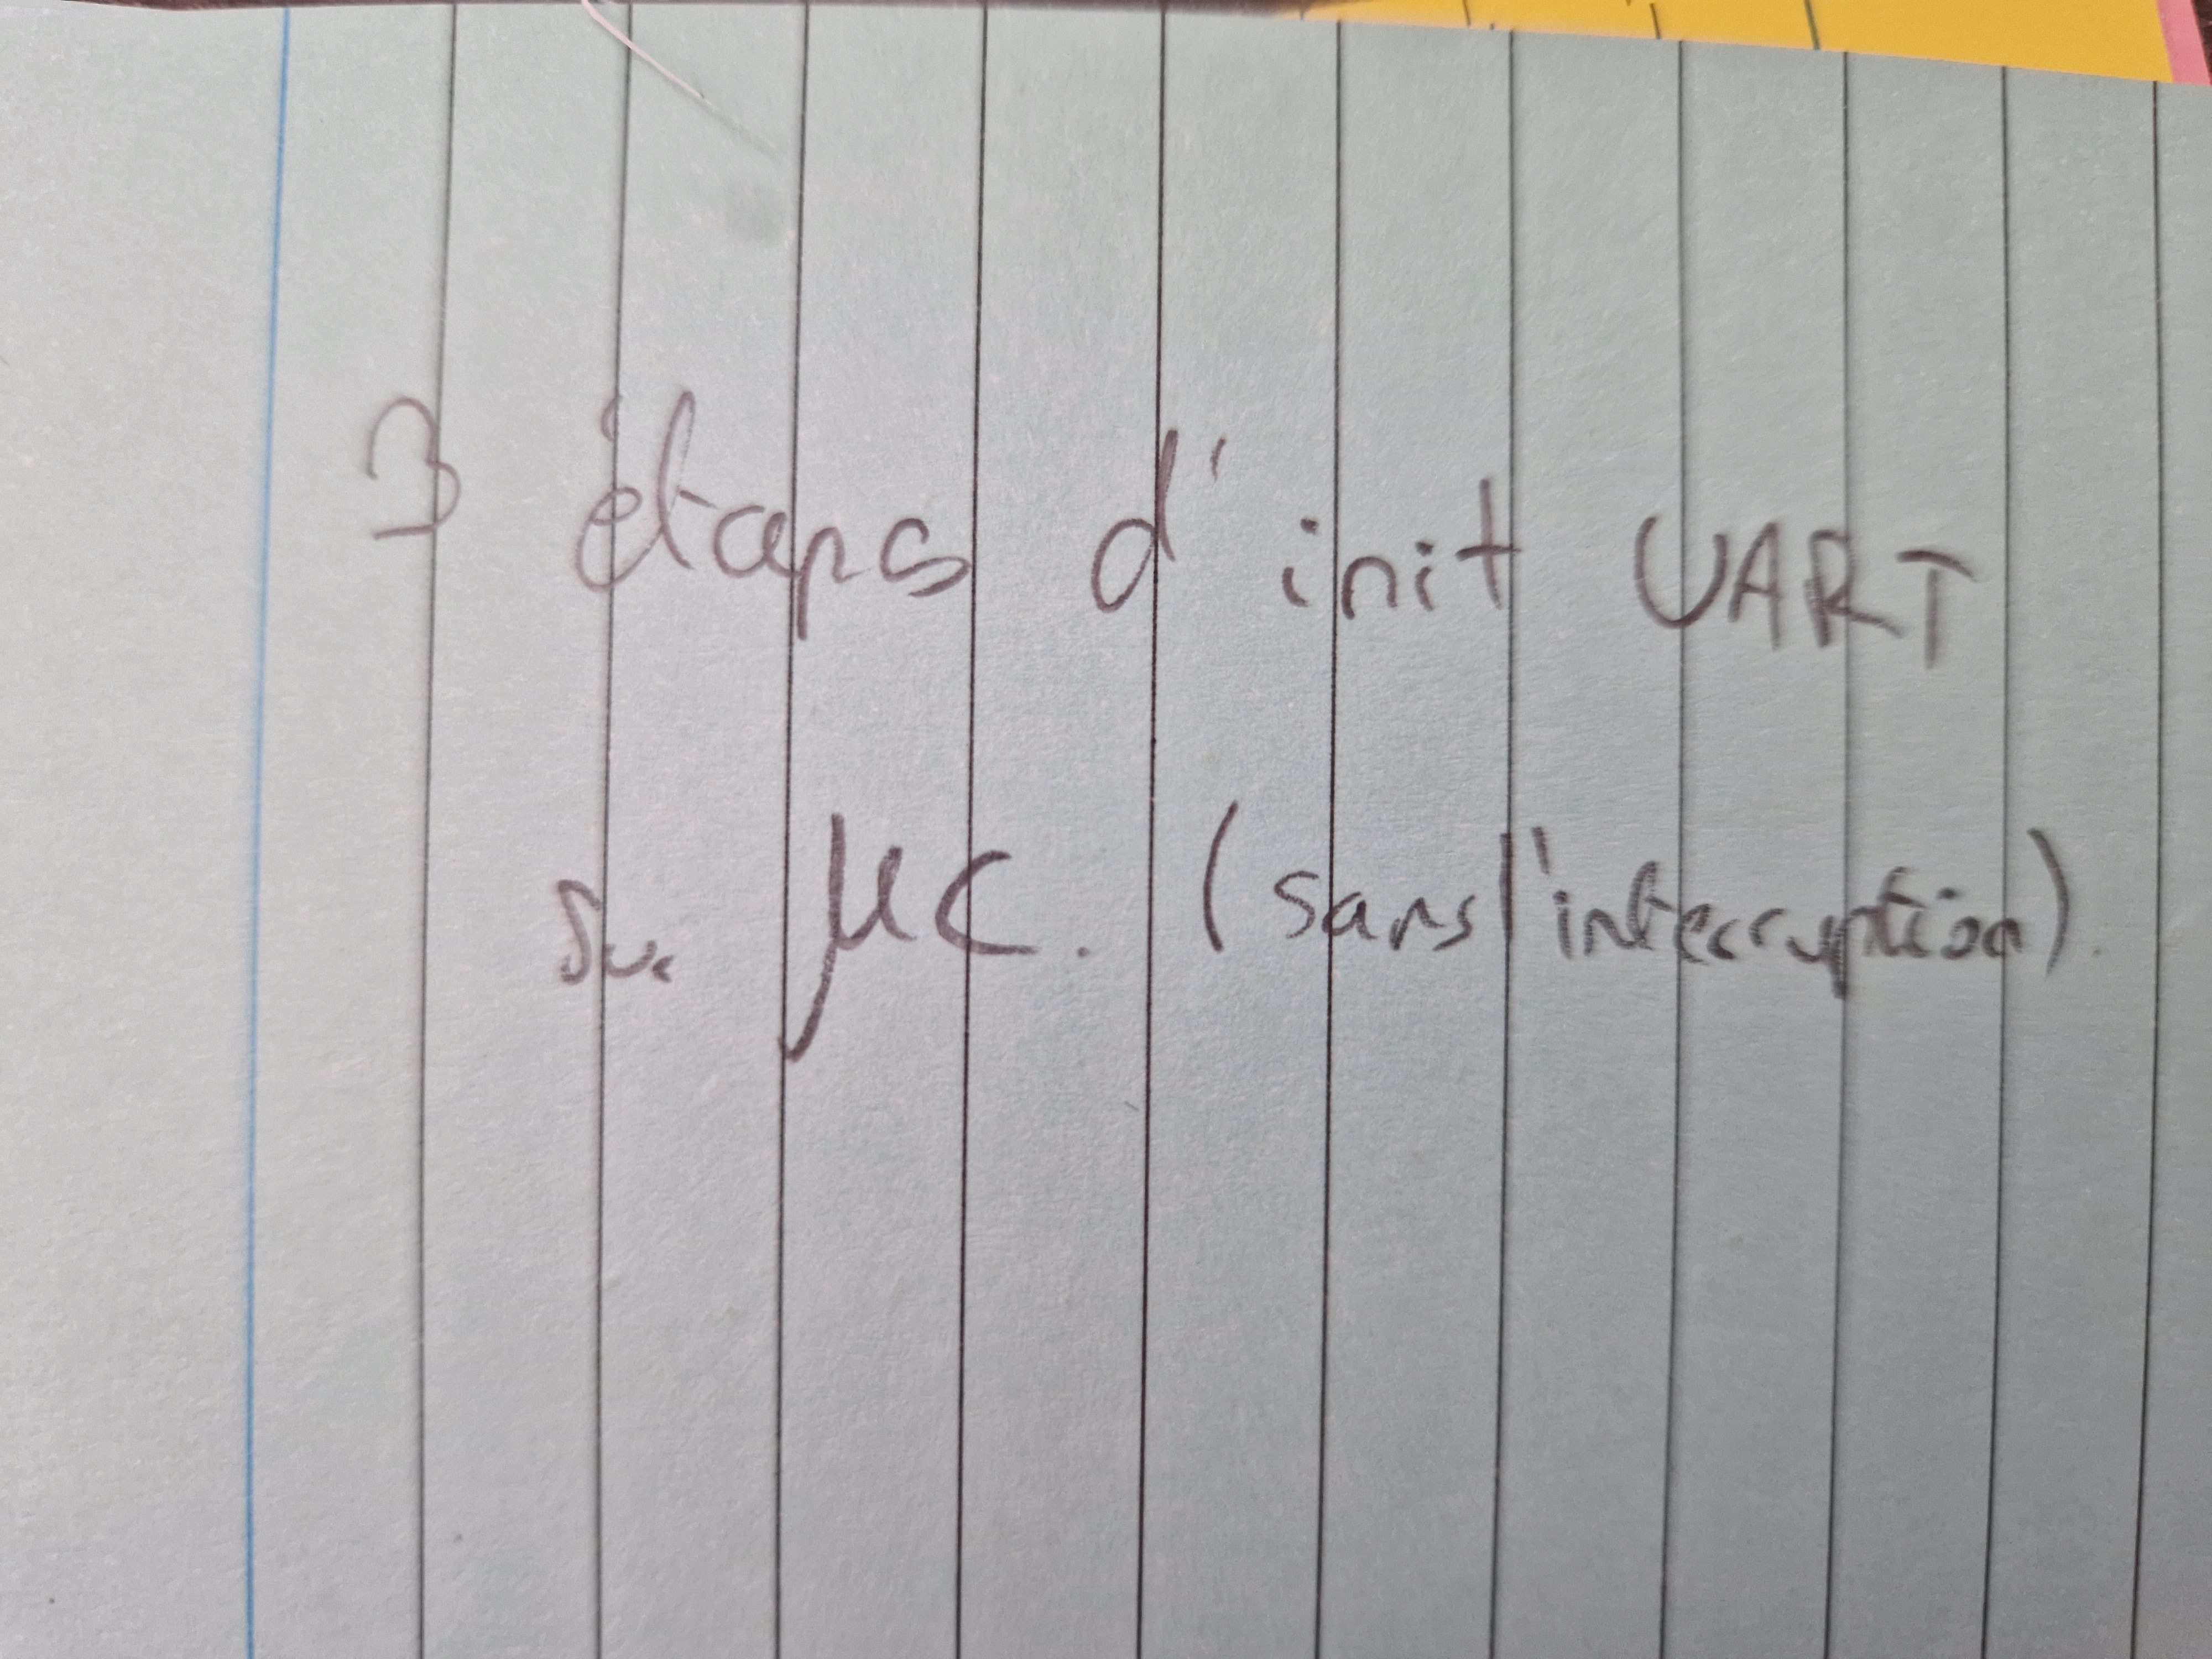 3 étaps d' init UART
sur µC. (sans l'interruption).